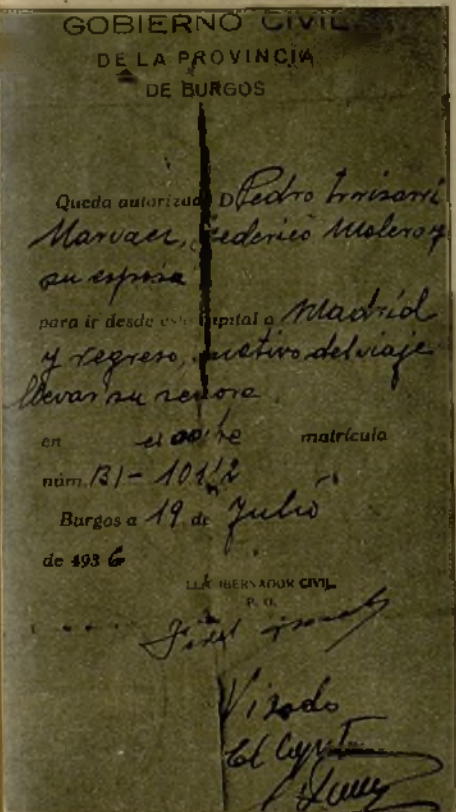 GOBIERNO CIVIL
DE LA PROVINCIA
DE BURGOS
Queda autorizado D Pedro Irrisarri
Marvaez, Federico Molero y
su esposa
para ir desde esta capital a Madrid
y regreso, motivo del viaje
llevar su señora
en el coche matrícula
núm. BI-10112
Burgos a 19 de Julio
de 1936
EL GOBERNADOR CIVIL
P. O.
Visado
El Capit